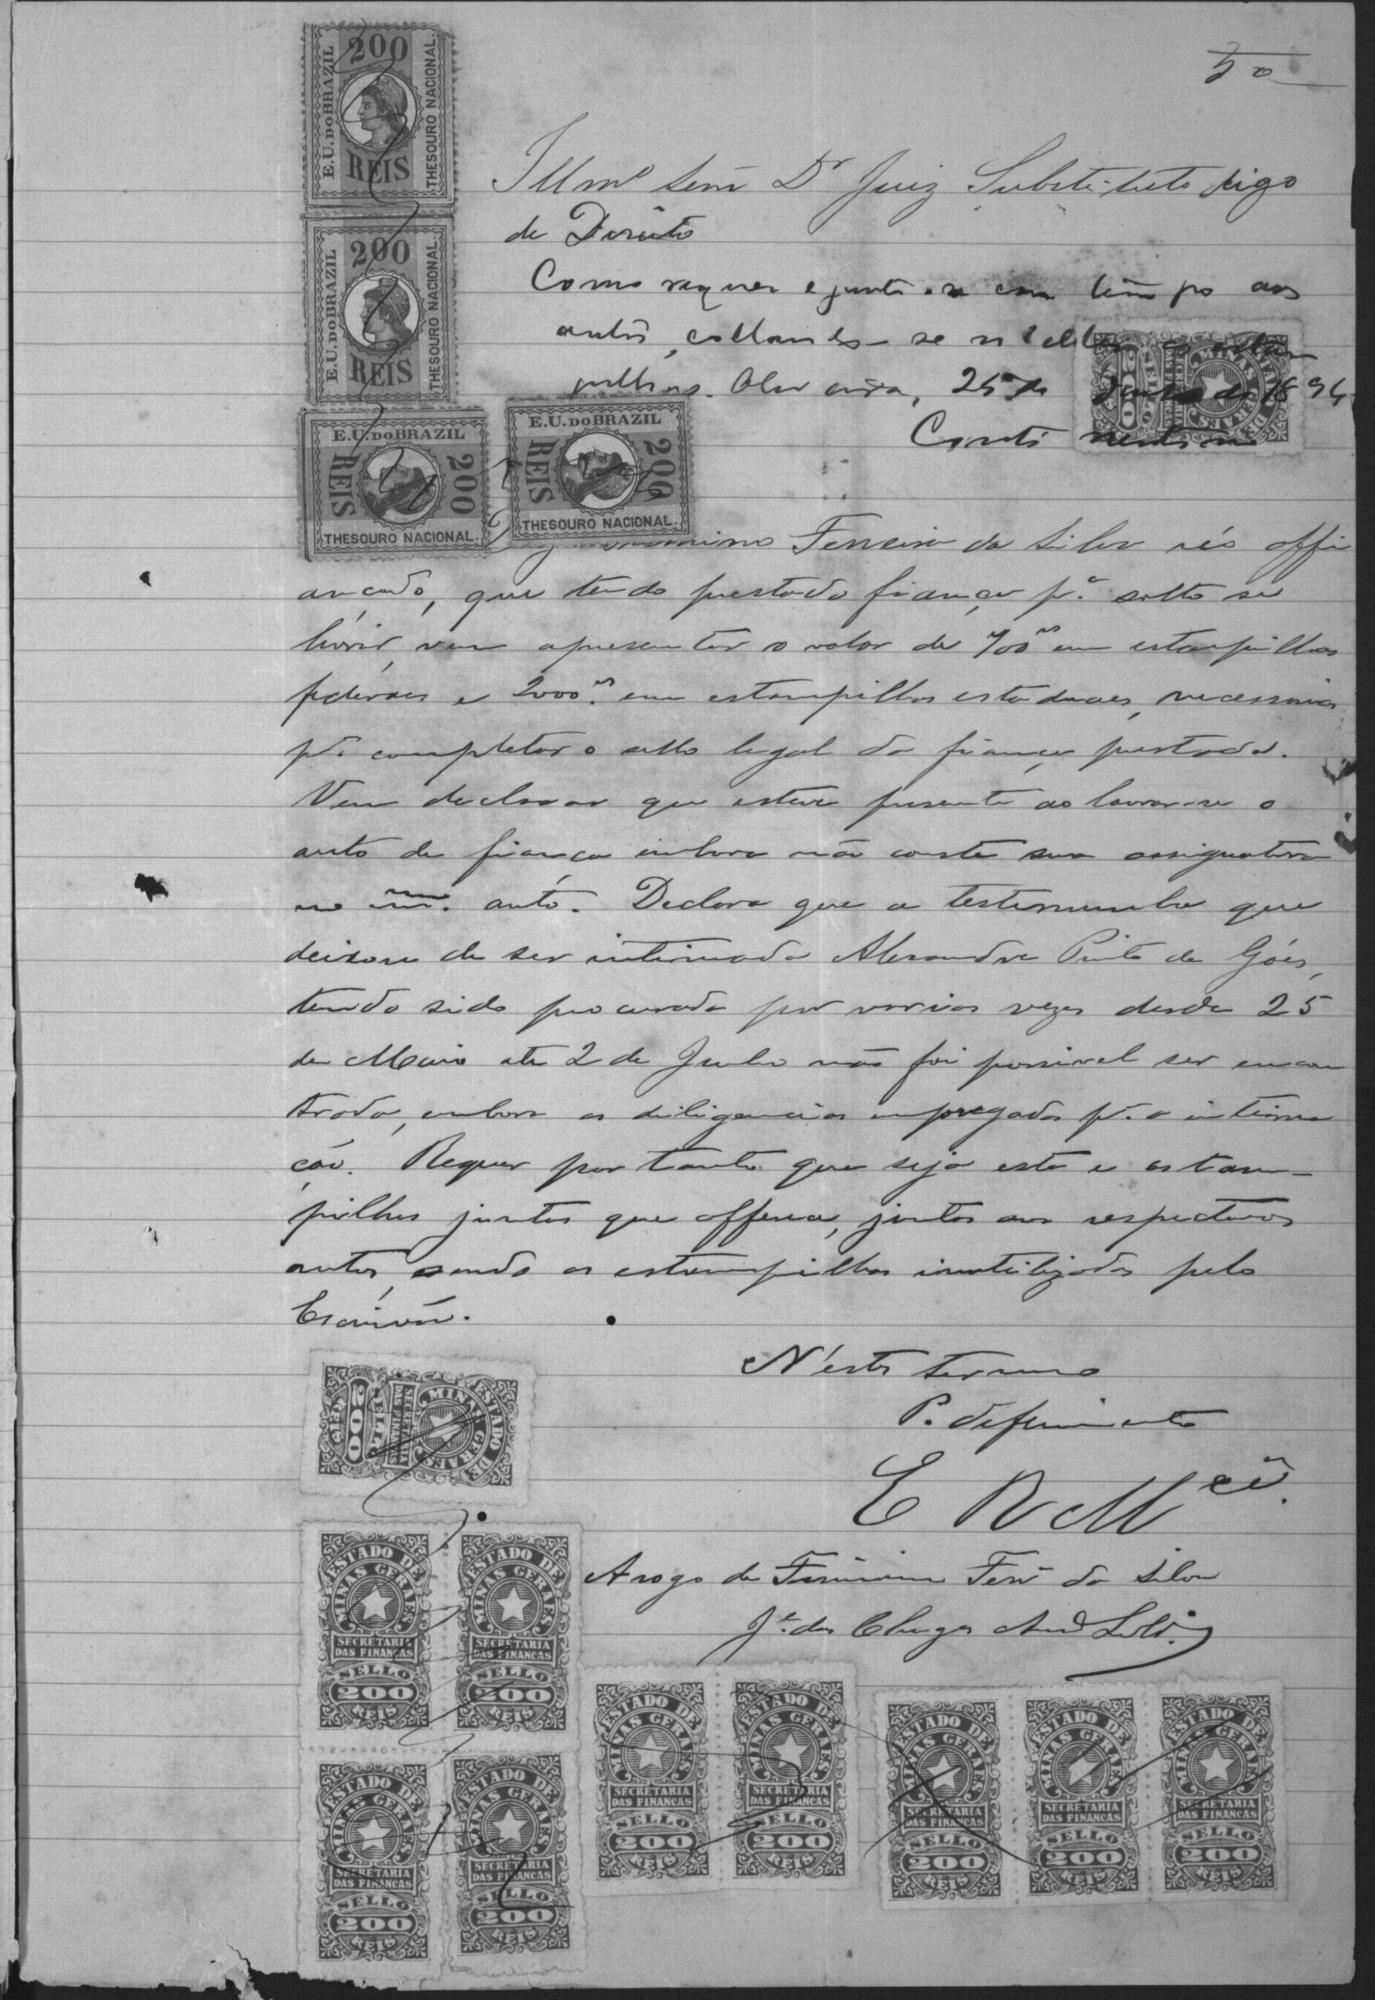 30
Illmº Senr Dr Juiz Substituto digo
de Direito
Como requer e junte-se em tempo aos
autos, collando-se n'elles as estam
pilhas. 25 de de 1894
200
E.U. DO BRAZIL
THESOURO NACIONAL.
REIS
200
E.U. DO BRAZIL
THESOURO NACIONAL.
REIS
E.U. DO BRAZIL
REIS 200
THESOURO NACIONAL.
E.U. DO BRAZIL
REIS 200
THESOURO NACIONAL.
ESTADO DE MINAS GERAES
200
Ferreira da Silva réo affi
ançado, que tendo prestado fiança pª solto se
livrar, vem apresentar o valor de 700rs em estampilhas
federaes e 2000rs em estampilhas estaduaes, necessarias
pª completar o sello legal da fiança prestada.
Vem declarar que esteve presente ao lavrar-se o
auto de fiança embora não conste sua assignatura
no mmo. auto. Declara que a testemunha que
deixou de ser intimada Alexandre Pinto de Góes,
tendo sido procurada por varias vezes desde 25
de Maio até 2 de Junho não foi possivel ser encon
trada, embora as diligencias empregadas pª a intima
ção. Requer por tanto que seja esta e estam-
pilhas juntas que offerece, juntas aos respectivos
autos, sendo as estampilhas inutilizadas pelo
Escrivão.
N'estes termos
P. deferimento
E R Mcê.
ESTADO DE MINAS GERAES
SECRETARIA DAS FINANCAS
SELLO
200
REIS
A rogo de Ferª da Silva
Jº das Chagas
ESTADO DE MINAS GERAES
SECRETARIA DAS FINANCAS
SELLO
200
REIS
ESTADO DE MINAS GERAES
SECRETARIA DAS FINANCAS
SELLO
200
REIS
ESTADO DE MINAS GERAES
SECRETARIA DAS FINANCAS
SELLO
200
REIS
ESTADO DE MINAS GERAES
SECRETARIA DAS FINANCAS
SELLO
200
REIS
ESTADO DE MINAS GERAES
SECRETARIA DAS FINANCAS
SELLO
200
REIS
ESTADO DE MINAS GERAES
SECRETARIA DAS FINANCAS
SELLO
200
REIS
ESTADO DE MINAS GERAES
SECRETARIA DAS FINANCAS
SELLO
200
REIS
ESTADO DE MINAS GERAES
SECRETARIA DAS FINANCAS
SELLO
200
REIS
ESTADO DE MINAS GERAES
SECRETARIA DAS FINANCAS
SELLO
200
REIS